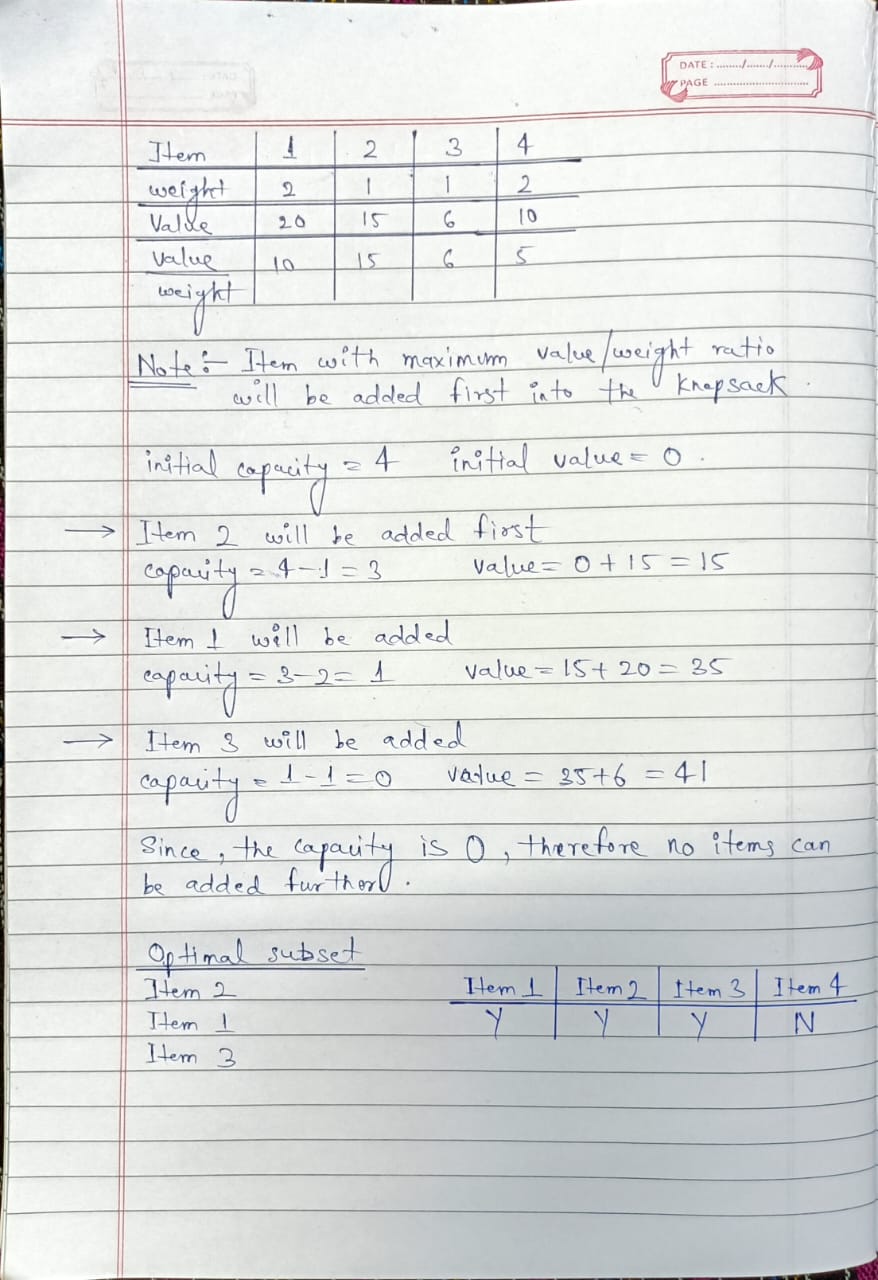 DATE : ......../......./...........
PAGE ..............................
Item 1 2 3 4
weight 2 1 1 2
Value 20 15 6 10
Value 10 15 6 5
weight
Note :- Item with maximum value/weight ratio
will be added first into the knapsack.
initial capacity = 4 initial value = 0.
→ Item 2 will be added first
capacity = 4-1 = 3 value = 0 + 15 = 15
→ Item 1 will be added
capacity = 3-2 = 1 value = 15 + 20 = 35
→ Item 3 will be added
capacity = 1-1 = 0 value = 35+6 = 41
Since, the capacity is 0, therefore no items can
be added further.
Optimal subset
Item 2 Item 1 Item 2 Item 3 Item 4
Item 1 Y Y Y N
Item 3